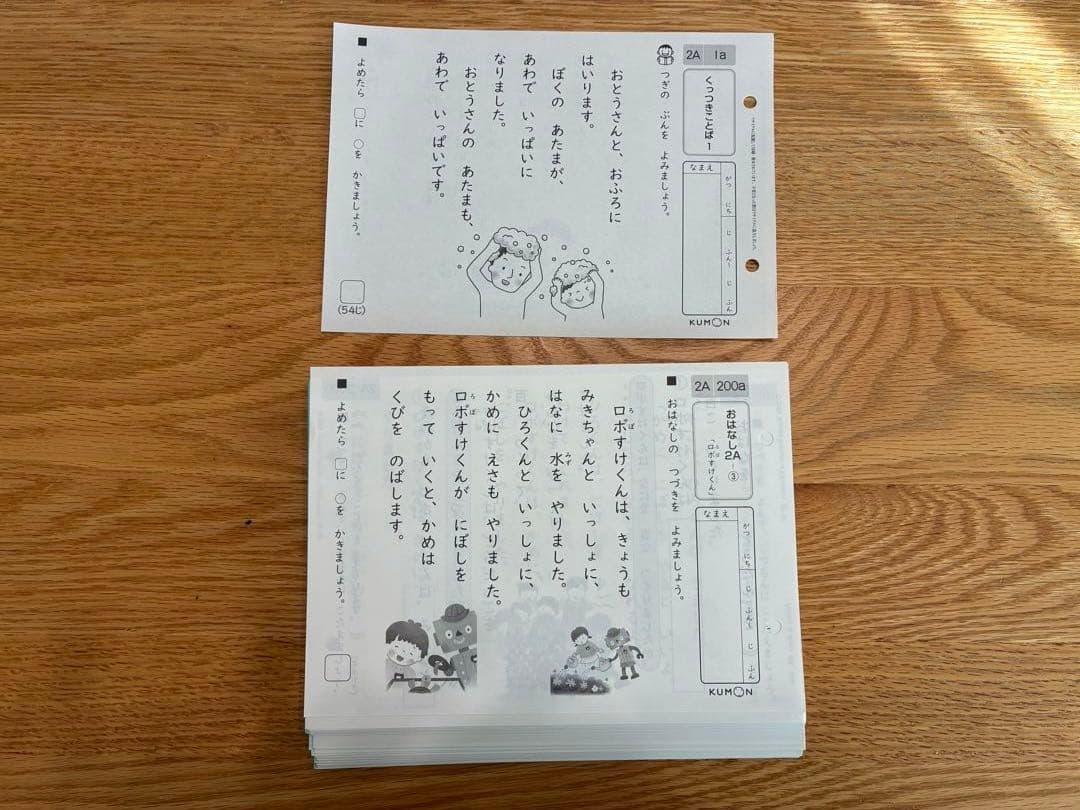 2A 1a
くっつきことば 1
なまえ
がつ にち じ ふん〜 じ ふん
KUMON
つぎの ぶんを よみましょう。
おとうさんと、おふろに
はいります。
ぼくの あたまが、
あわで いっぱいに
なりました。
おとうさんの あたまも、
あわで いっぱいです。
■ よめたら □に ○を かきましょう。
(54じ)
2A 200a
おはなし2A-③
「ロボすけくん」
ろぼ
なまえ
がつ にち じ ふん〜 じ ふん
KUMON
■ おはなしの つづきを よみましょう。
ロボすけくんは、きょうも
ろぼ
みきちゃんと いっしょに、
はなに 水を やりました。
みず
ひろくんと いっしょに、
かめに えさも やりました。
ロボすけくんが にぼしを
ろぼ
もって いくと、かめは
くびを のばします。
■ よめたら □に ○を かきましょう。